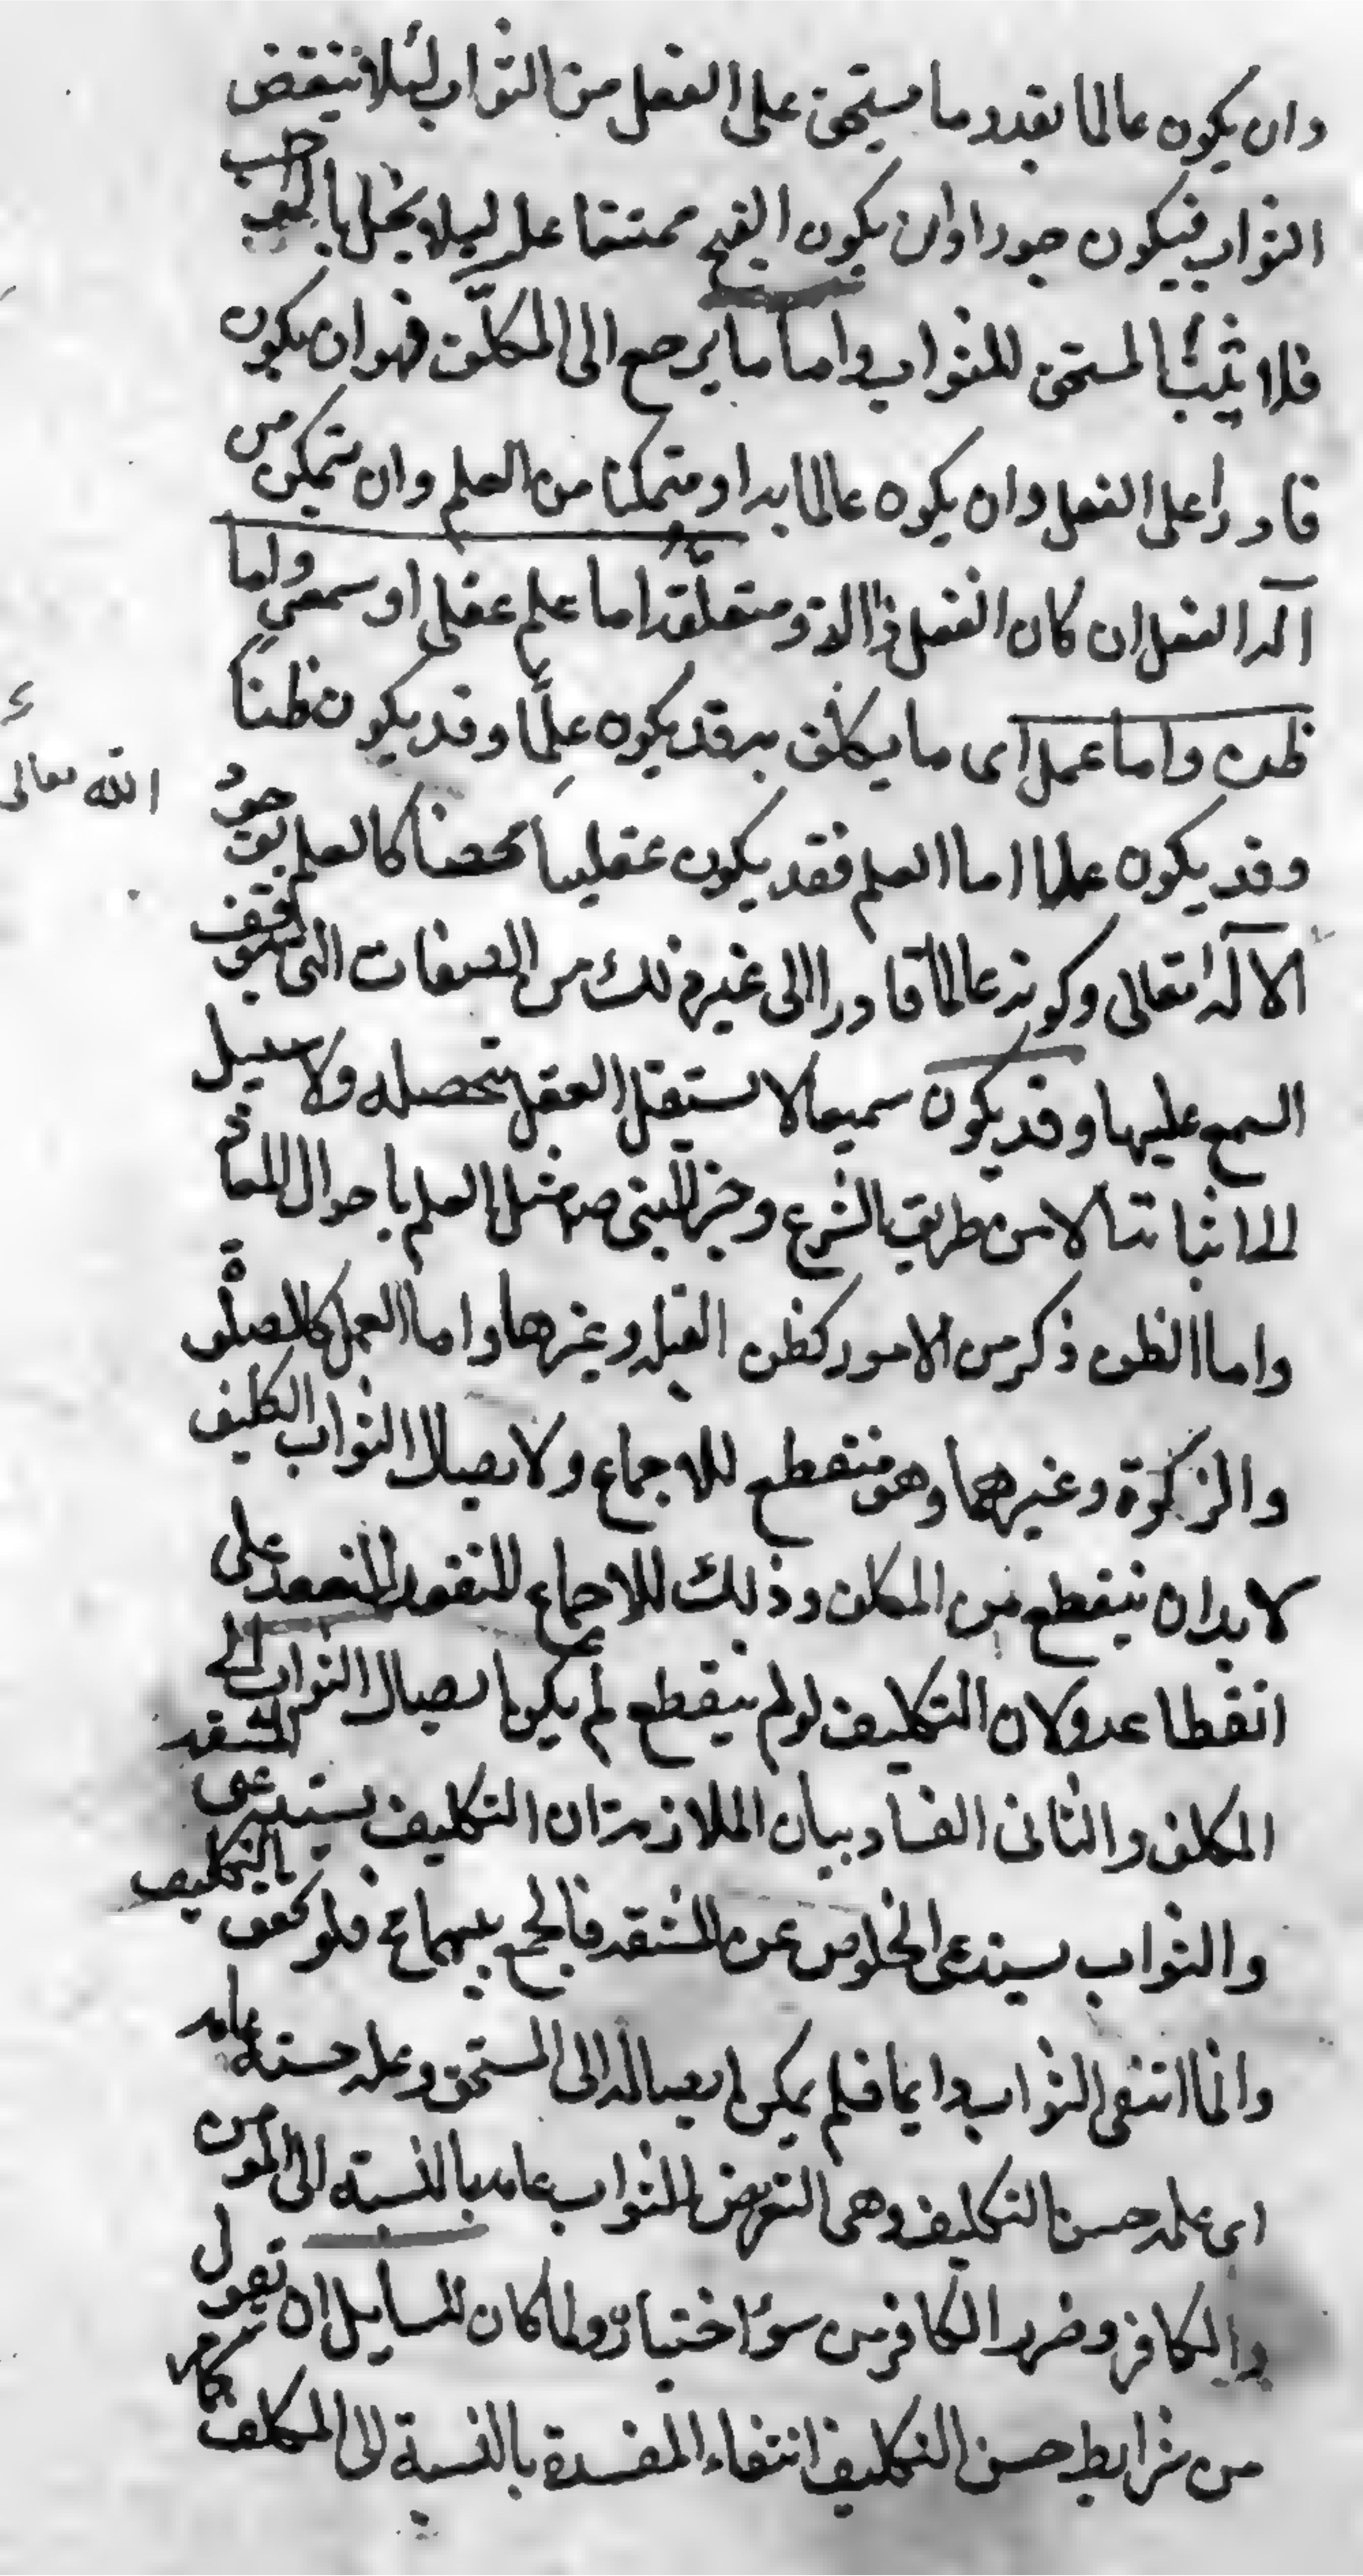 وان يكون عالما بقدر ما يستحق على الفعل من الثواب لئلا ينقض
الثواب فيكون جورا وان يكون القبيح ممتنعا عليه ليلا يخل بالواجب
فلا يثيب المستحق للثواب واما ما يرجع الى المكلف فهو ان يكون
قادرا على الفعل وان يكون عالما به او متمكنا من العلم وان يتمكن من
آلة الفعل ان كان الفعل ذا آلة ومتعلقه اما علم عقلى او سمعى واما
ظن واما عمل اى ما يكلف به قد يكون علما وقد يكون ظنا
وقد يكون عملا اما العلم فقد يكون عقليا محضا كالعلم بوجود
الله تعالى
الآله تعالى وكونه عالما قادرا الى غير ذلك من الصفات التى يتوقف
السمع عليها وقد يكون سمعيا لا يستقل العقل بتحصيله ولا سبيل
الى اثباته الا من طريق الشرع وخبر النبى صم مثل العلم باحوال المعاد
واما الظن ذكر من الامور كظن القبلة وغيرها واما العمل كالصلوة
والزكوة وغيرهما وهو منقطع للاجماع ولايصال الثواب التكليف
لا بد ان ينقطع من المكلف وذلك للاجماع المنعقد على
انقطاعه ولان التكليف لو لم ينقطع لم يكن ايصال الثواب الى
المكلف والثانى الفساد بيان الملازمة ان التكليف يستدعى المشقة
والثواب يستدعى الخلوص عن المشقة فالجمع بينهما مح فلو تحقق التكليف
دائما انتفى الثواب دايما فلم يمكن ايصاله الى المستحق وعلة حسنه عامة
اى علة حسن التكليف وهى التعريض للثواب عامة بالنسبة الى المومن
والكافر وضرر الكافر من سوء اختياره ولما كان للسايل ان يقول
من شرايط حسن التكليف انتفاء المفسدة بالنسبة الى المكلف